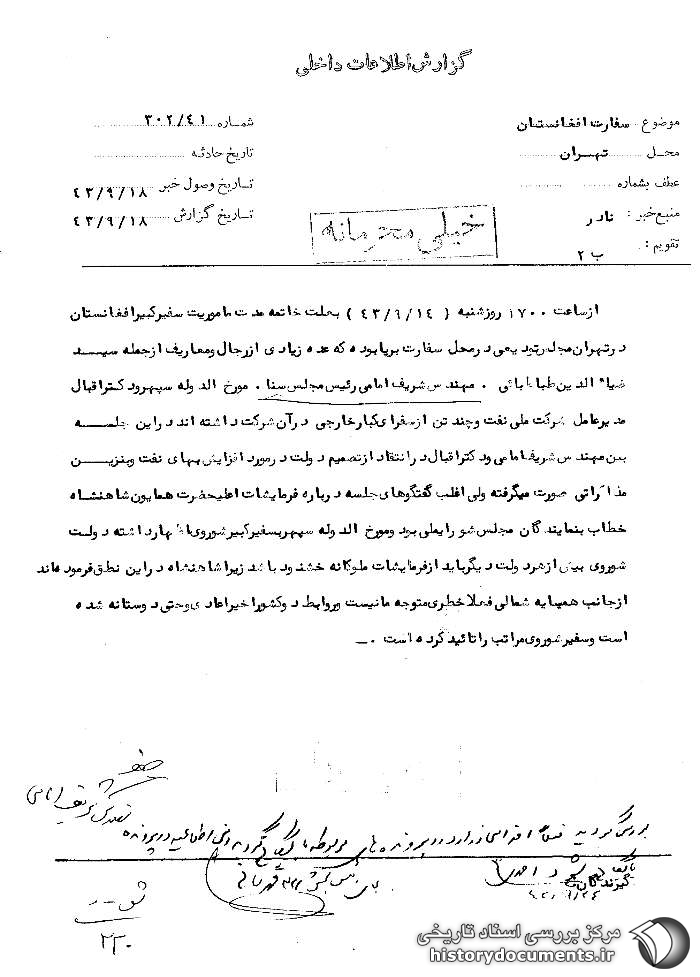 گزارش اطلاعات داخلی
موضوع سفارت افغانستان
محل تهران
عطف بشماره
منبع خبر : نادر
تقویم : ب ۲
شماره ۳۰۲/٤۱
تاریخ حادثه
تاریخ وصول خبر ٤۳/۹/۱۸
تاریخ گزارش ٤۳/۹/۱۸
خیلی محرمانه
از ساعت ۱۷۰۰ روز شنبه ( ٤۳/۹/۱٤ ) بعلت خاتمه مدت ماموریت سفیر کبیر افغانستان
در تهران مجلس تودیعی در محل سفارت برپا بوده که عده زیادی از رجال و معاریف از جمله سید
ضیاء الدین طباطبائی . مهندس شریف امامی رئیس مجلس سنا . مورخ الدوله سپهر و دکتر اقبال
مدیر عامل شرکت ملی نفت و چند تن از سفرای کبار خارجی در آن شرکت داشته اند در این جلسه
بین مهندس شریف امامی و دکتر اقبال در انتقاد از تصمیم دولت در مورد افزایش بهای نفت و بنزین
مذاکراتی صورت میگرفته ولی اغلب گفتگوهای جلسه درباره فرمایشات اعلیحضرت همایون شاهنشاه
خطاب بنمایندگان مجلس شورایملی بود و مورخ الدوله سپهر بسفیر کبیر شوروی اظهار داشته دولت
شوروی بیش از هر دولت دیگر باید از فرمایشات ملوکانه خشنود باشد زیرا شاهنشاه در این نطق فرموده اند
از جانب همسایه شمالی فعلا خطری متوجه ما نیست و روابط دو کشور اخیرا عادی و حتی دوستانه شده
است و سفیر شوروی مراتب را تائید کرده است .ـ
شریف امامی
بررسی گردید فعلاً اقدامی ندارد در پرونده های مربوطه بایگانی گردد
گیرندگان
۲۲۰
مرکز بررسی اسناد تاریخی
historydocuments.ir